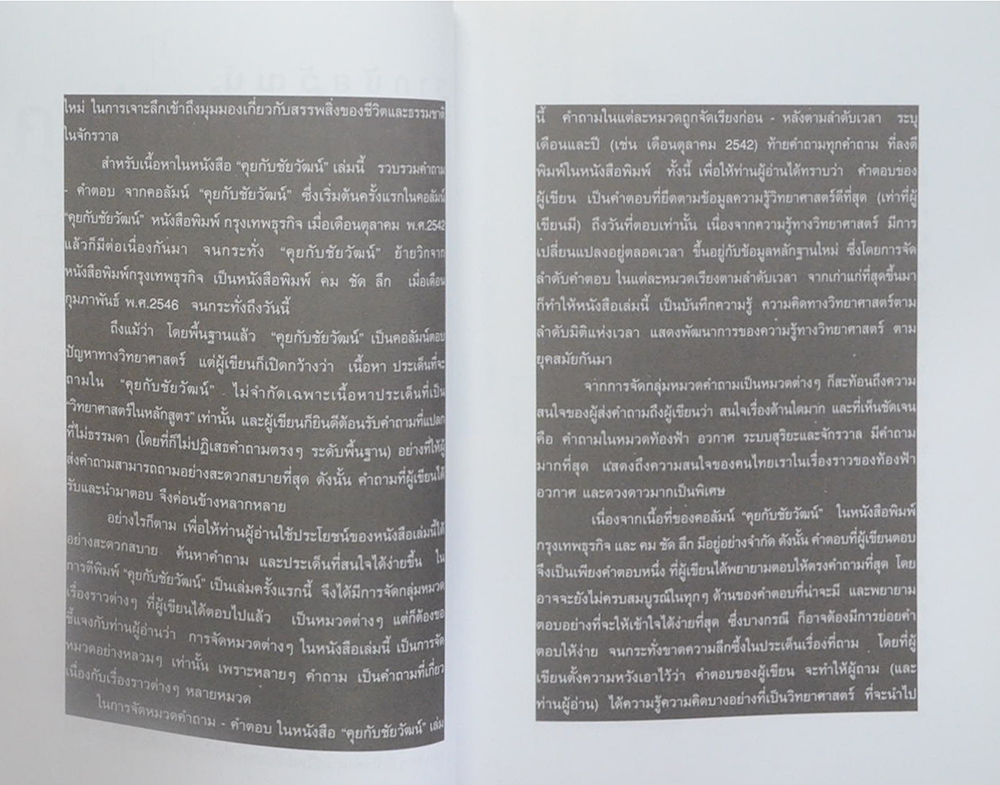 ใหม่ ในการเจาะลึกเข้าถึงมุมมองเกี่ยวกับสรรพสิ่งของชีวิตและธรรมชาติ
ในจักรวาล
สำหรับเนื้อหาในหนังสือ “คุยกับชัยวัฒน์” เล่มนี้ รวบรวมคำถาม
- คำตอบ จากคอลัมน์ “คุยกับชัยวัฒน์” ซึ่งเริ่มต้นครั้งแรกในคอลัมน์
“คุยกับชัยวัฒน์” หนังสือพิมพ์ กรุงเทพธุรกิจ เมื่อเดือนตุลาคม พ.ศ.2542
แล้วก็มีต่อเนื่องกันมา จนกระทั่ง “คุยกับชัยวัฒน์” ย้ายวิกจาก
หนังสือพิมพ์กรุงเทพธุรกิจ เป็นหนังสือพิมพ์ คม ชัด ลึก เมื่อเดือน
กุมภาพันธ์ พ.ศ.2546 จนกระทั่งถึงวันนี้
ถึงแม้ว่า โดยพื้นฐานแล้ว “คุยกับชัยวัฒน์” เป็นคอลัมน์ตอบ
ปัญหาทางวิทยาศาสตร์ แต่ผู้เขียนก็เปิดกว้างว่า เนื้อหา ประเด็นที่จะ
ถามใน “คุยกับชัยวัฒน์” ไม่จำกัดเฉพาะเนื้อหาประเด็นที่เป็น
“วิทยาศาสตร์ในหลักสูตร” เท่านั้น และผู้เขียนก็ยินดีต้อนรับคำถามที่แปลก
ที่ไม่ธรรมดา (โดยที่ก็ไม่ปฏิเสธคำถามตรงๆ ระดับพื้นฐาน) อย่างที่ให้ผู้
ส่งคำถามสามารถถามอย่างสะดวกสบายที่สุด ดังนั้น คำถามที่ผู้เขียนได้
รับและนำมาตอบ จึงค่อนข้างหลากหลาย
อย่างไรก็ตาม เพื่อให้ท่านผู้อ่านใช้ประโยชน์ของหนังสือเล่มนี้ได้
อย่างสะดวกสบาย ค้นหาคำถาม และประเด็นที่สนใจได้ง่ายขึ้น ใน
การตีพิมพ์ “คุยกับชัยวัฒน์” เป็นเล่มครั้งแรกนี้ จึงได้มีการจัดกลุ่มหมวด
เรื่องราวต่างๆ ที่ผู้เขียนได้ตอบไปแล้ว เป็นหมวดต่างๆ แต่ก็ต้องขอ
ชี้แจงกับท่านผู้อ่านว่า การจัดหมวดต่างๆ ในหนังสือเล่มนี้ เป็นการจัด
หมวดอย่างหลวมๆ เท่านั้น เพราะหลายๆ คำถาม เป็นคำถามที่เกี่ยว
เนื่องกับเรื่องราวต่างๆ หลายหมวด
ในการจัดหมวดคำถาม - คำตอบ ในหนังสือ “คุยกับชัยวัฒน์” เล่ม
นี้ คำถามในแต่ละหมวดถูกจัดเรียงก่อน - หลังตามลำดับเวลา ระบุ
เดือนและปี (เช่น เดือนตุลาคม 2542) ท้ายคำถามทุกคำถาม ที่ลงตี
พิมพ์ในหนังสือพิมพ์ ทั้งนี้ เพื่อให้ท่านผู้อ่านได้ทราบว่า คำตอบของ
ผู้เขียน เป็นคำตอบที่ยึดตามข้อมูลความรู้วิทยาศาสตร์ดีที่สุด (เท่าที่ผู้
เขียนมี) ถึงวันที่ตอบเท่านั้น เนื่องจากความรู้ทางวิทยาศาสตร์ มีการ
เปลี่ยนแปลงอยู่ตลอดเวลา ขึ้นอยู่กับข้อมูลหลักฐานใหม่ ซึ่งโดยการจัด
ลำดับคำตอบ ในแต่ละหมวดเรียงตามลำดับเวลา จากเก่าแก่ที่สุดขึ้นมา
ก็ทำให้หนังสือเล่มนี้ เป็นบันทึกความรู้ ความคิดทางวิทยาศาสตร์ตาม
ลำดับมิติแห่งเวลา แสดงพัฒนาการของความรู้ทางวิทยาศาสตร์ ตาม
ยุคสมัยกันมา
จากการจัดกลุ่มหมวดคำถามเป็นหมวดต่างๆ ก็สะท้อนถึงความ
สนใจของผู้ส่งคำถามถึงผู้เขียนว่า สนใจเรื่องด้านใดมาก และที่เห็นชัดเจน
คือ คำถามในหมวดท้องฟ้า อวกาศ ระบบสุริยะและจักรวาล มีคำถาม
มากที่สุด แสดงถึงความสนใจของคนไทยเราในเรื่องราวของท้องฟ้า
อวกาศ และดวงดาวมากเป็นพิเศษ
เนื่องจากเนื้อที่ของคอลัมน์ “คุยกับชัยวัฒน์” ในหนังสือพิมพ์
กรุงเทพธุรกิจ และ คม ชัด ลึก มีอยู่อย่างจำกัด ดังนั้น คำตอบที่ผู้เขียนตอบ
จึงเป็นเพียงคำตอบหนึ่ง ที่ผู้เขียนได้พยายามตอบให้ตรงคำถามที่สุด โดย
อาจจะยังไม่ครบสมบูรณ์ในทุกๆ ด้านของคำตอบที่น่าจะมี และพยายาม
ตอบอย่างที่จะให้เข้าใจได้ง่ายที่สุด ซึ่งบางกรณี ก็อาจต้องมีการย่อยคำ
ตอบให้ง่าย จนกระทั่งขาดความลึกซึ้งในประเด็นเรื่องที่ถาม โดยที่ผู้
เขียนตั้งความหวังเอาไว้ว่า คำตอบของผู้เขียน จะทำให้ผู้ถาม (และ
ท่านผู้อ่าน) ได้ความรู้ความคิดบางอย่างที่เป็นวิทยาศาสตร์ ที่จะนำไป